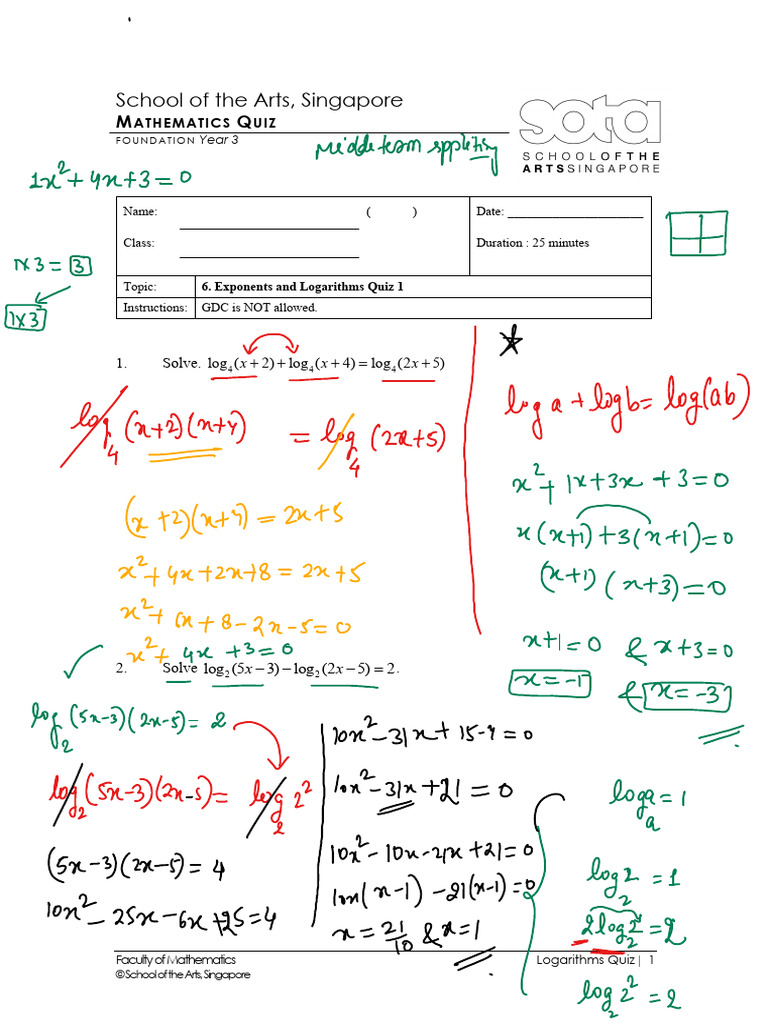 School of the Arts, Singapore
MATHEMATICS QUIZ
FOUNDATION Year 3
sota
SCHOOLOFTHE
ARTSSINGAPORE
Middle team sppliting
1x²+4x+3=0
1x3 = 3
1x3
Name: ( )
Class:
Date:
Duration : 25 minutes
Topic: 6. Exponents and Logarithms Quiz 1
Instructions: GDC is NOT allowed.
1. Solve. log₄(x+2)+log₄(x+4)=log₄(2x+5)
log₄(x+2)(x+4) = log₄(2x+5)
(x+2)(x+4)=2x+5
x²+4x+2x+8=2x+5
x²+6x+8-2x-5=0
x²+4x+3=0
log a + log b = log(ab)
x²+1x+3x+3=0
x(x+1)+3(x+1)=0
(x+1)(x+3)=0
x+1=0 & x+3=0
x=-1 & x=-3
2. Solve log₂(5x−3)−log₂(2x−5)=2.
log₂(5x-3)(2x-5)=2
log₂(5x-3)(2x-5)=log₂2²
(5x-3)(2x-5)=4
10x²-25x-6x+25=4
10x²-31x+15-4=0
10x²-31x+21=0
10x²-10x-21x+21=0
10x(x-1)-21(x-1)=0
x=21/10 & x=1
logₐa=1
log₂2=1
2log₂2=2
log₂2²=2
Faculty of Mathematics
©School of the Arts, Singapore
Logarithms Quiz| 1